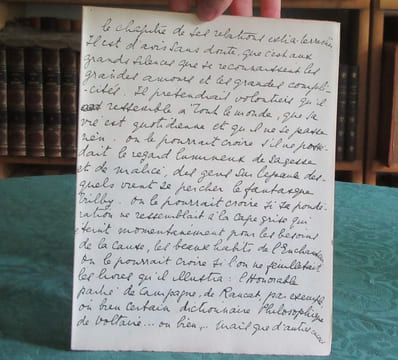 le chapitre de ses relations extra-terrestres
Il est d'avis sans doute, que c'est aux
grands silences que se reconnaissent les
grandes amours et les grandes compli-
-cités. Il prétendrait volontiers qu'il
ressemble à Tout le monde, que sa
vie est quotidienne et qu'il ne se passe
rien. On le pourrait croire s'il ne possé-
dait le regard lumineux de sagesse
et de malice, des gens sur l'épaule des-
quels vient se percher le fantasque
Trilby. On le pourrait croire si sa pondé-
ration ne ressemblait à la cape grise qui
ternit momentanément pour les besoins
de la cause, les beaux habits de l'Enchanteur
On le pourrait croire si l'on ne feuilletait
les livres qu'il illustra : l'Honorable
partie de Campagne, de Raucat, par exemple
ou bien certain dictionnaire Philosophique
de Voltaire... ou bien... mais que d'autres